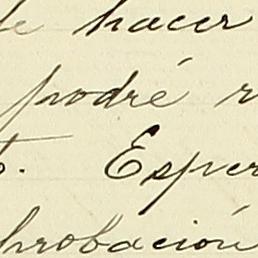 de hacer
podré r
. Esper
probación